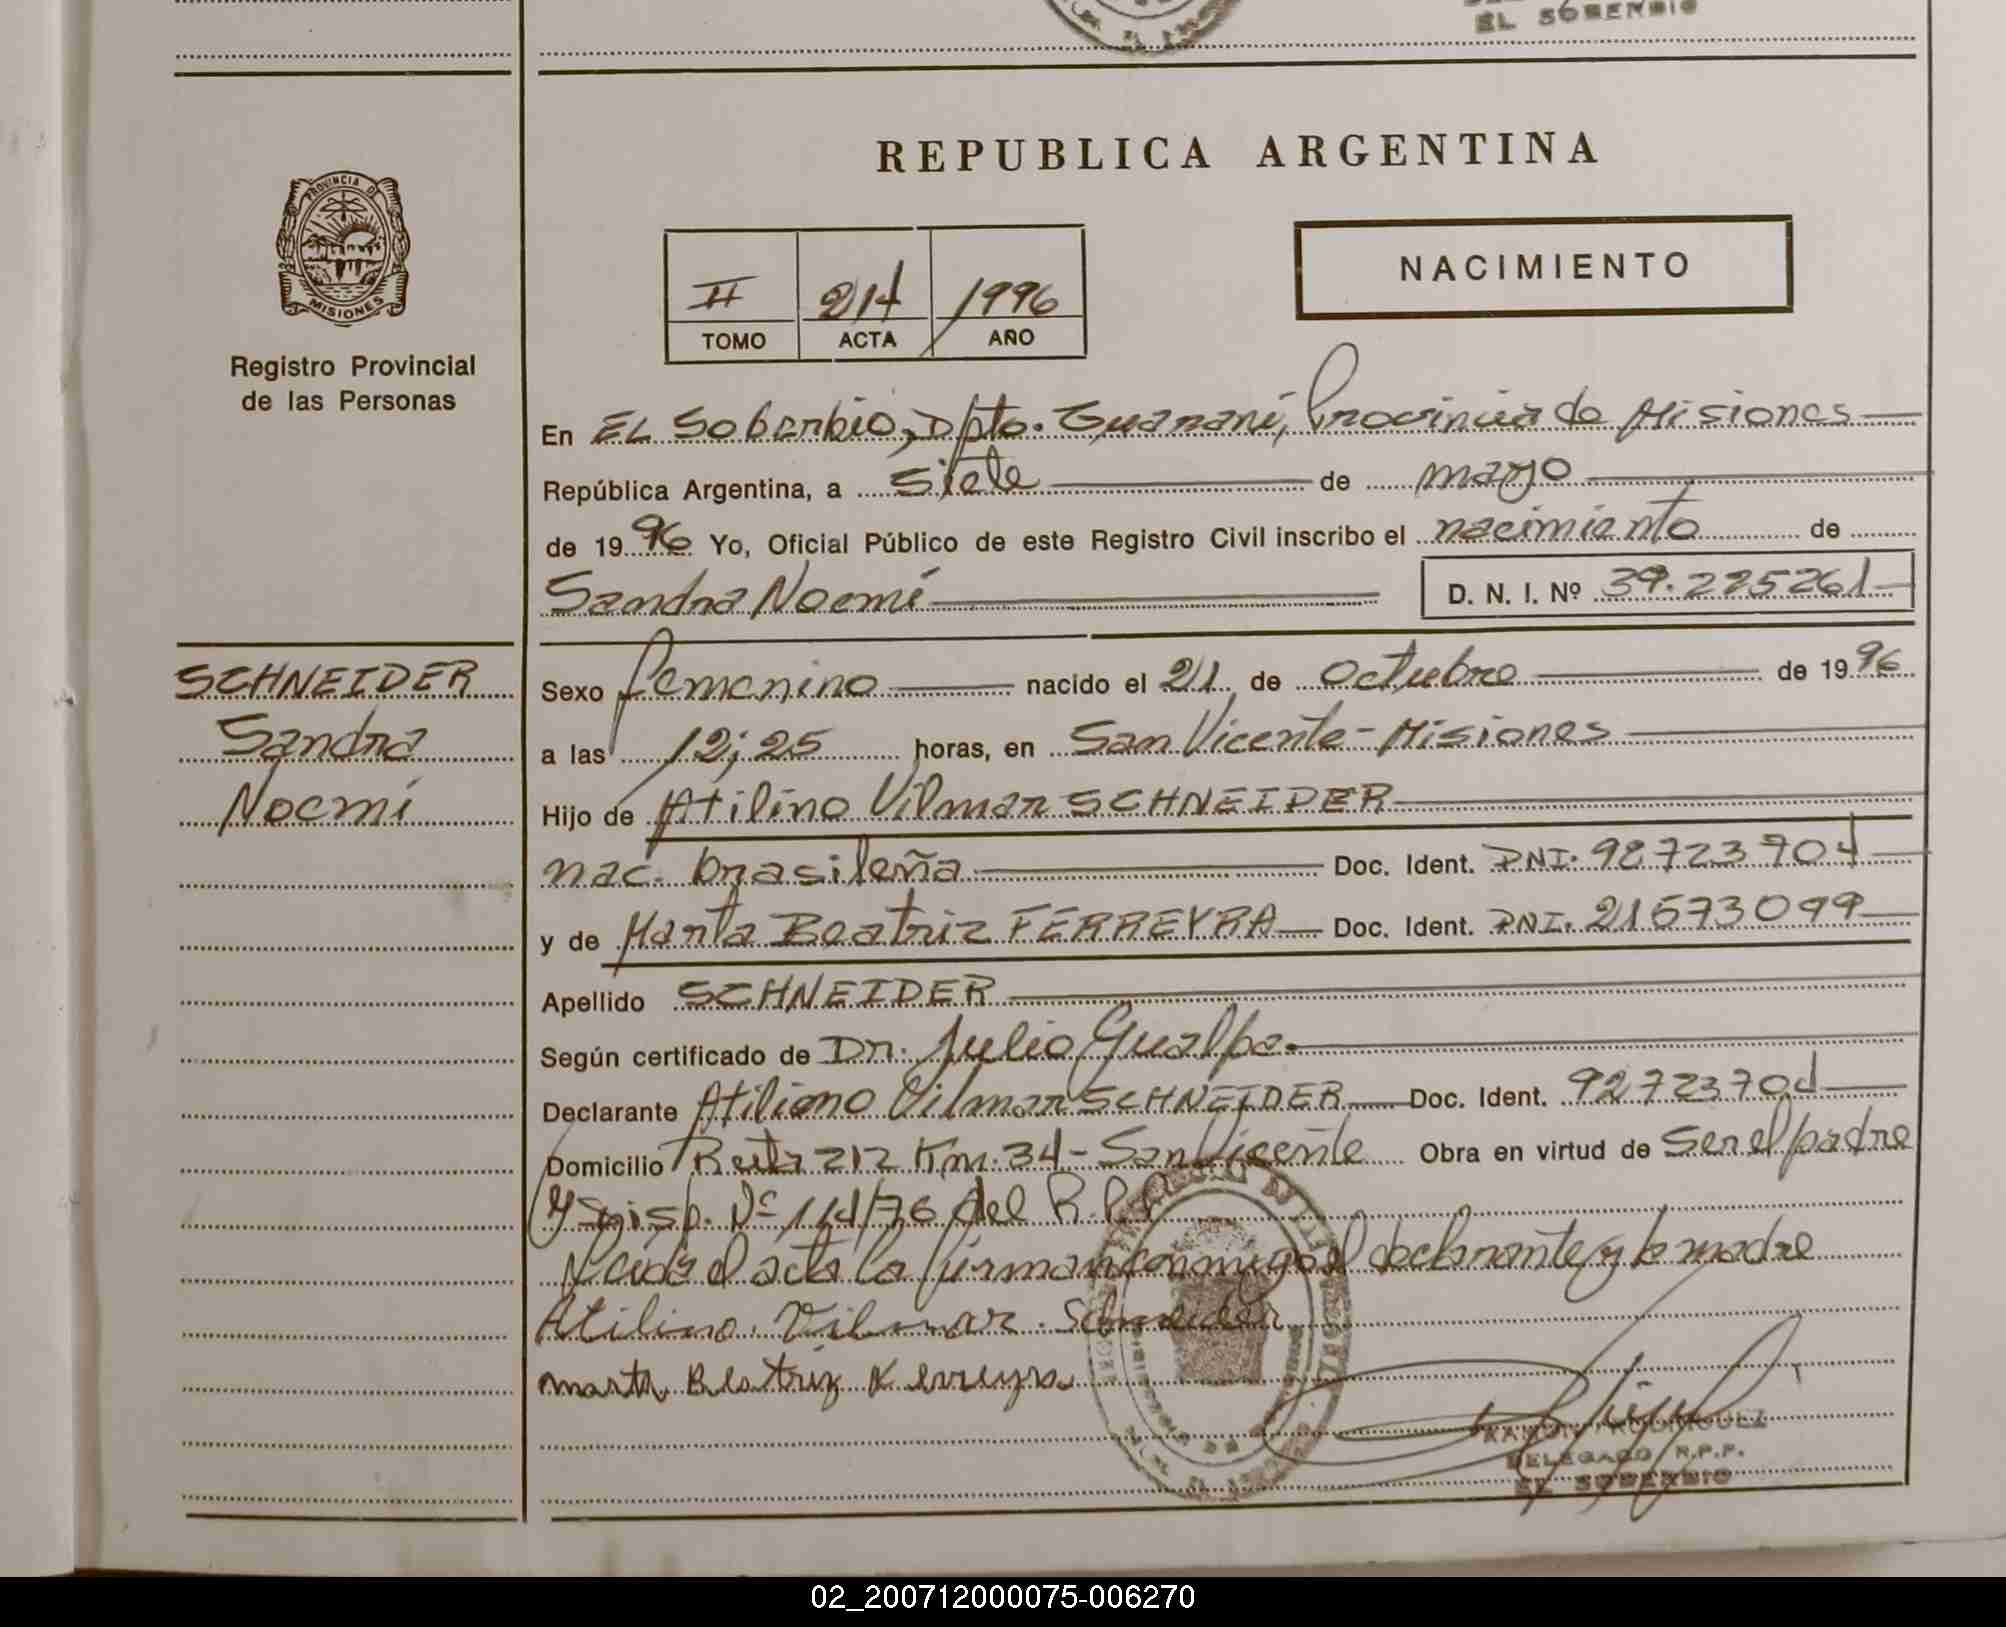 EL SOBERBIO
REPUBLICA ARGENTINA
PROVINCIA D
MISIONES
Registro Provincial
de las Personas
NACIMIENTO
II 214 1996
TOMO ACTA AÑO
En EL Soberbio, Dpto. Guaraní, Provincia de Misiones
República Argentina, a siete de mayo
de 1996 Yo, Oficial Público de este Registro Civil inscribo el nacimiento de
Sandra Noemí
D. N. I. Nº 39.225261
SCHNEIDER
Sandra
Noemí
Sexo femenino nacido el 21 de Octubre de 1996
a las 12;25 horas, en San Vicente-Misiones
Hijo de Atilino Vilmar SCHNEIDER
nac. brasileña Doc. Ident. DNI. 92723704
y de Marta Beatriz FERREYRA Doc. Ident. DNI. 21573099
Apellido SCHNEIDER
Según certificado de Dr. Julio Gualpa.
Declarante Atilino Vilmar SCHNEIDER Doc. Ident. 92723704
Domicilio Ruta 212 Km. 34-San Vicente Obra en virtud de ser el padre
y Disp. Nº 114/76 del R.P.P.
Leída el acta la firman conmigo el declarante y la madre
Atilino. Vilmar. Schneider
marta Beatriz Ferreyra
RAMON RODRIGUEZ
DELEGADO R.P.P.
EL SOBERBIO
02_200712000075-006270